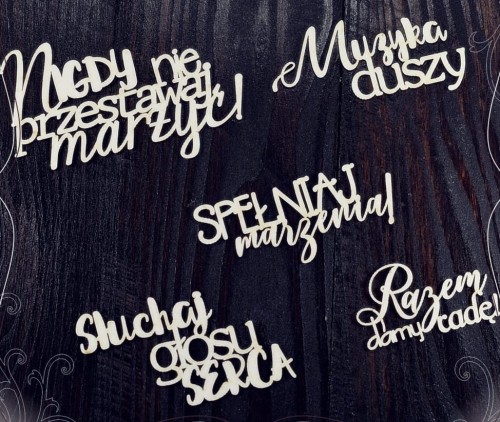 Nigdy nie
przestawaj
marzyć!
Muzyka
duszy
SPEŁNIAJ
marzenia!
Słuchaj
głosu
SERCA
Razem
damy radę!